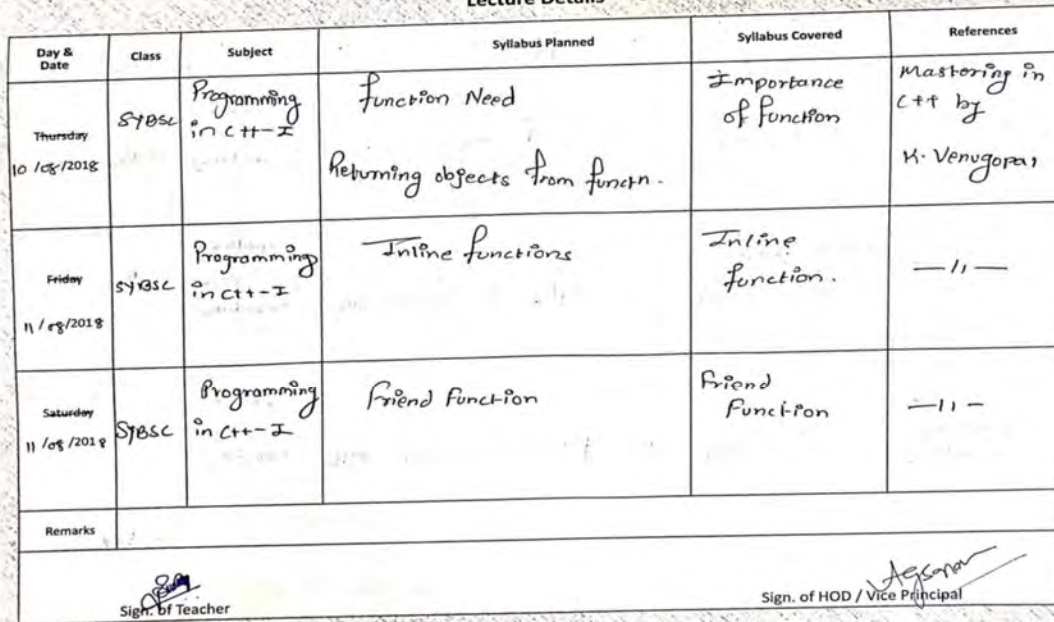 Lecture Details
Day & Date Class Subject Syllabus Planned Syllabus Covered References
Thursday
10/08/2018
SYBSC
Programming
in C++-I
function Need
Returning objects from functn.
Importance
of function
Mastering in
C++ by
K. Venugopal
Friday
11/08/2018
SYBSC
Programming
in C++-I
Inline functions
Inline
function.
—11—
Saturday
11/08/2018
SYBSC
Programming
in C++-I
Friend Function
Friend
Function
—11—
Remarks
Sign. of Teacher
Sign. of HOD / Vice Principal